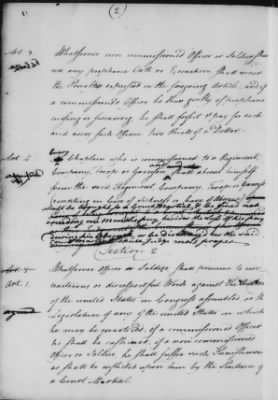 (2)
Art. 3 Whatsoever non commissioned Officer or Soldier shall
use any prophane Oath or Execration shall incur
the Penalties expressed in the foregoing Article; and if
a commissioned Officer be thus guilty of prophane
cursing or swearing, he shall forfeit & pay for each
and every such Offence two thirds of a Dollar.
Art. 4 Every Chaplain who is commissioned to a Regiment
Company, Troop or Garrison shall absent himself
from the said Regiment Company, Troop or Garrison
excepting in Case of sickness or leave of Absence
shall be brought to a Court Martial
Court martial shall judge most proper
Section 2
Art. 1. Whatsoever Officer or Soldier shall presume to use
traiterous or disrespectful Words against the
of the united States in Congress assembled or the
Legislature of any of the united States in which
he may be quartered, if a commissioned Officer
he shall be cashiered, if a non commissioned
Officer or Soldier he shall suffer such Punishment
as shall be inflicted upon him by the Sentence of
a Court Martial.